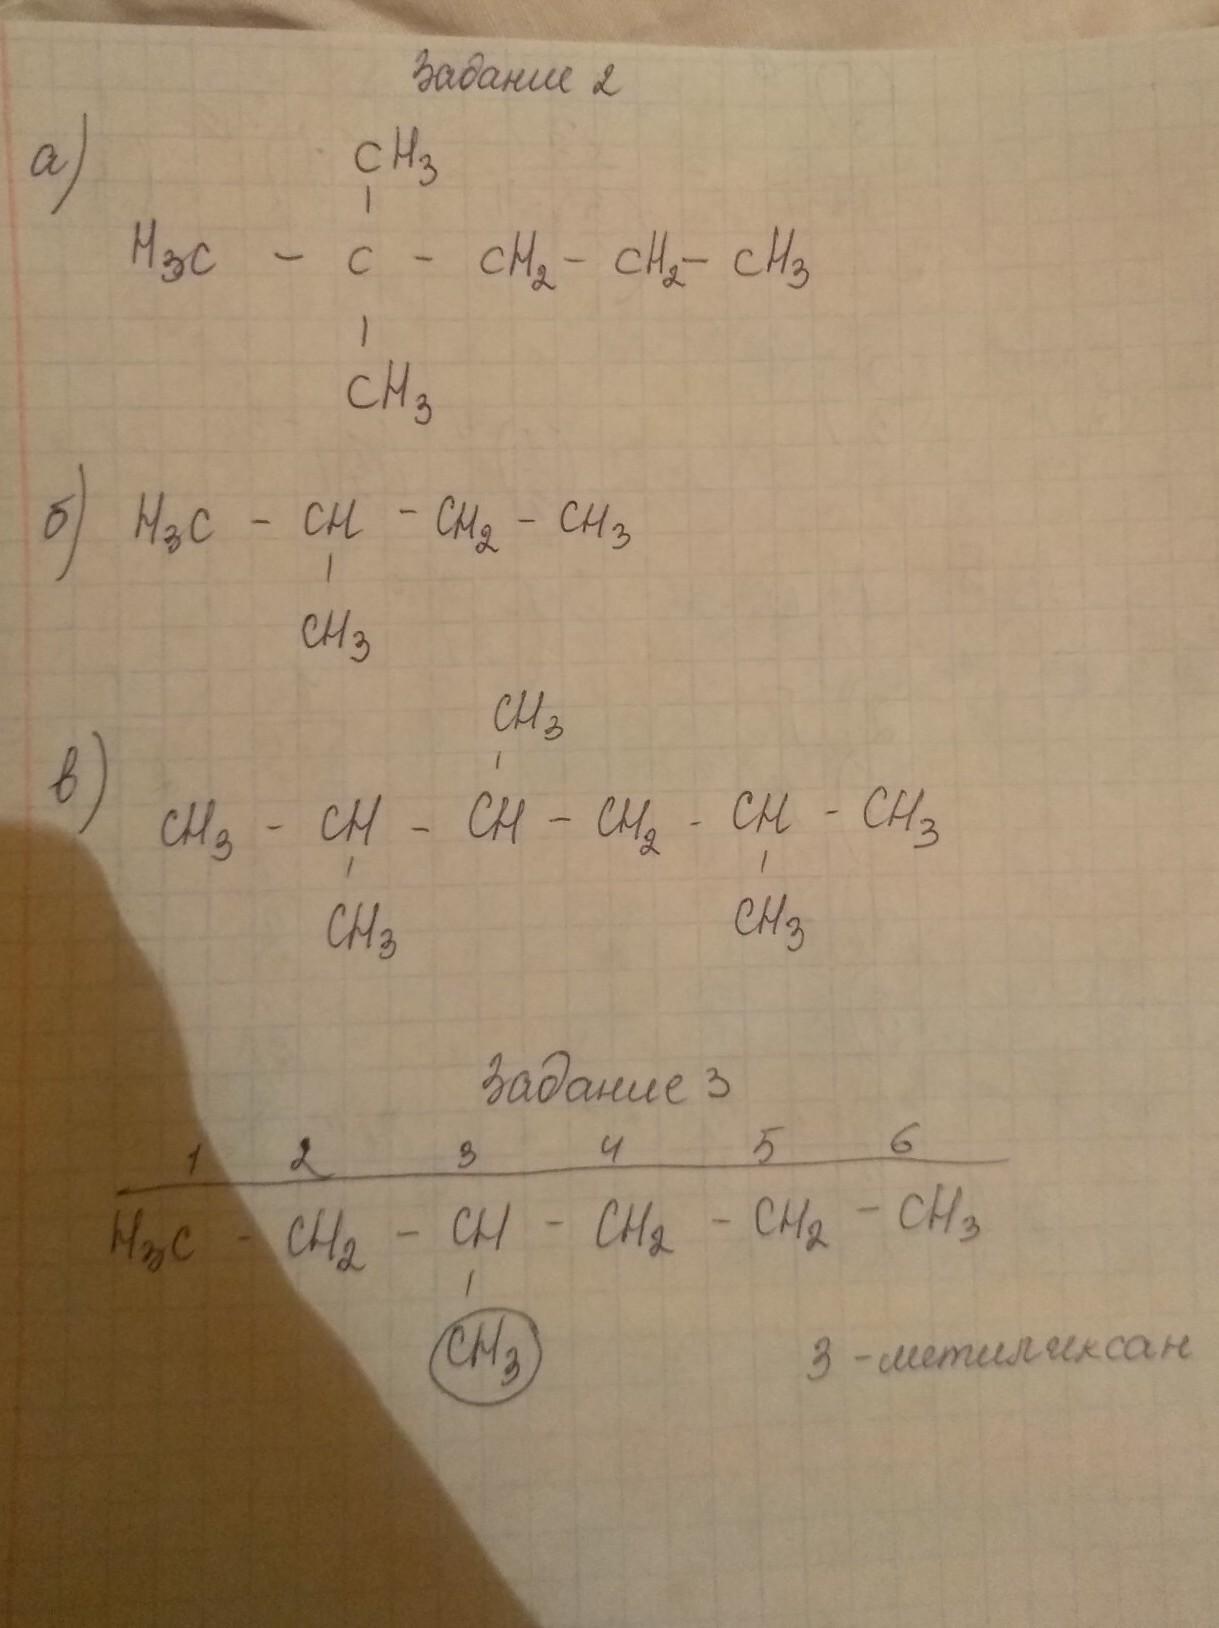 Задание 2
а)
CH3
H3C - C - CH2 - CH2 - CH3
CH3
б) H3C - CH - CH2 - CH3
CH3
CH3
в)
CH3 - CH - CH - CH2 - CH - CH3
CH3 CH3
Задание 3
1 2 3 4 5 6
H3C - CH2 - CH - CH2 - CH2 - CH3
CH3
3 - метилгексан